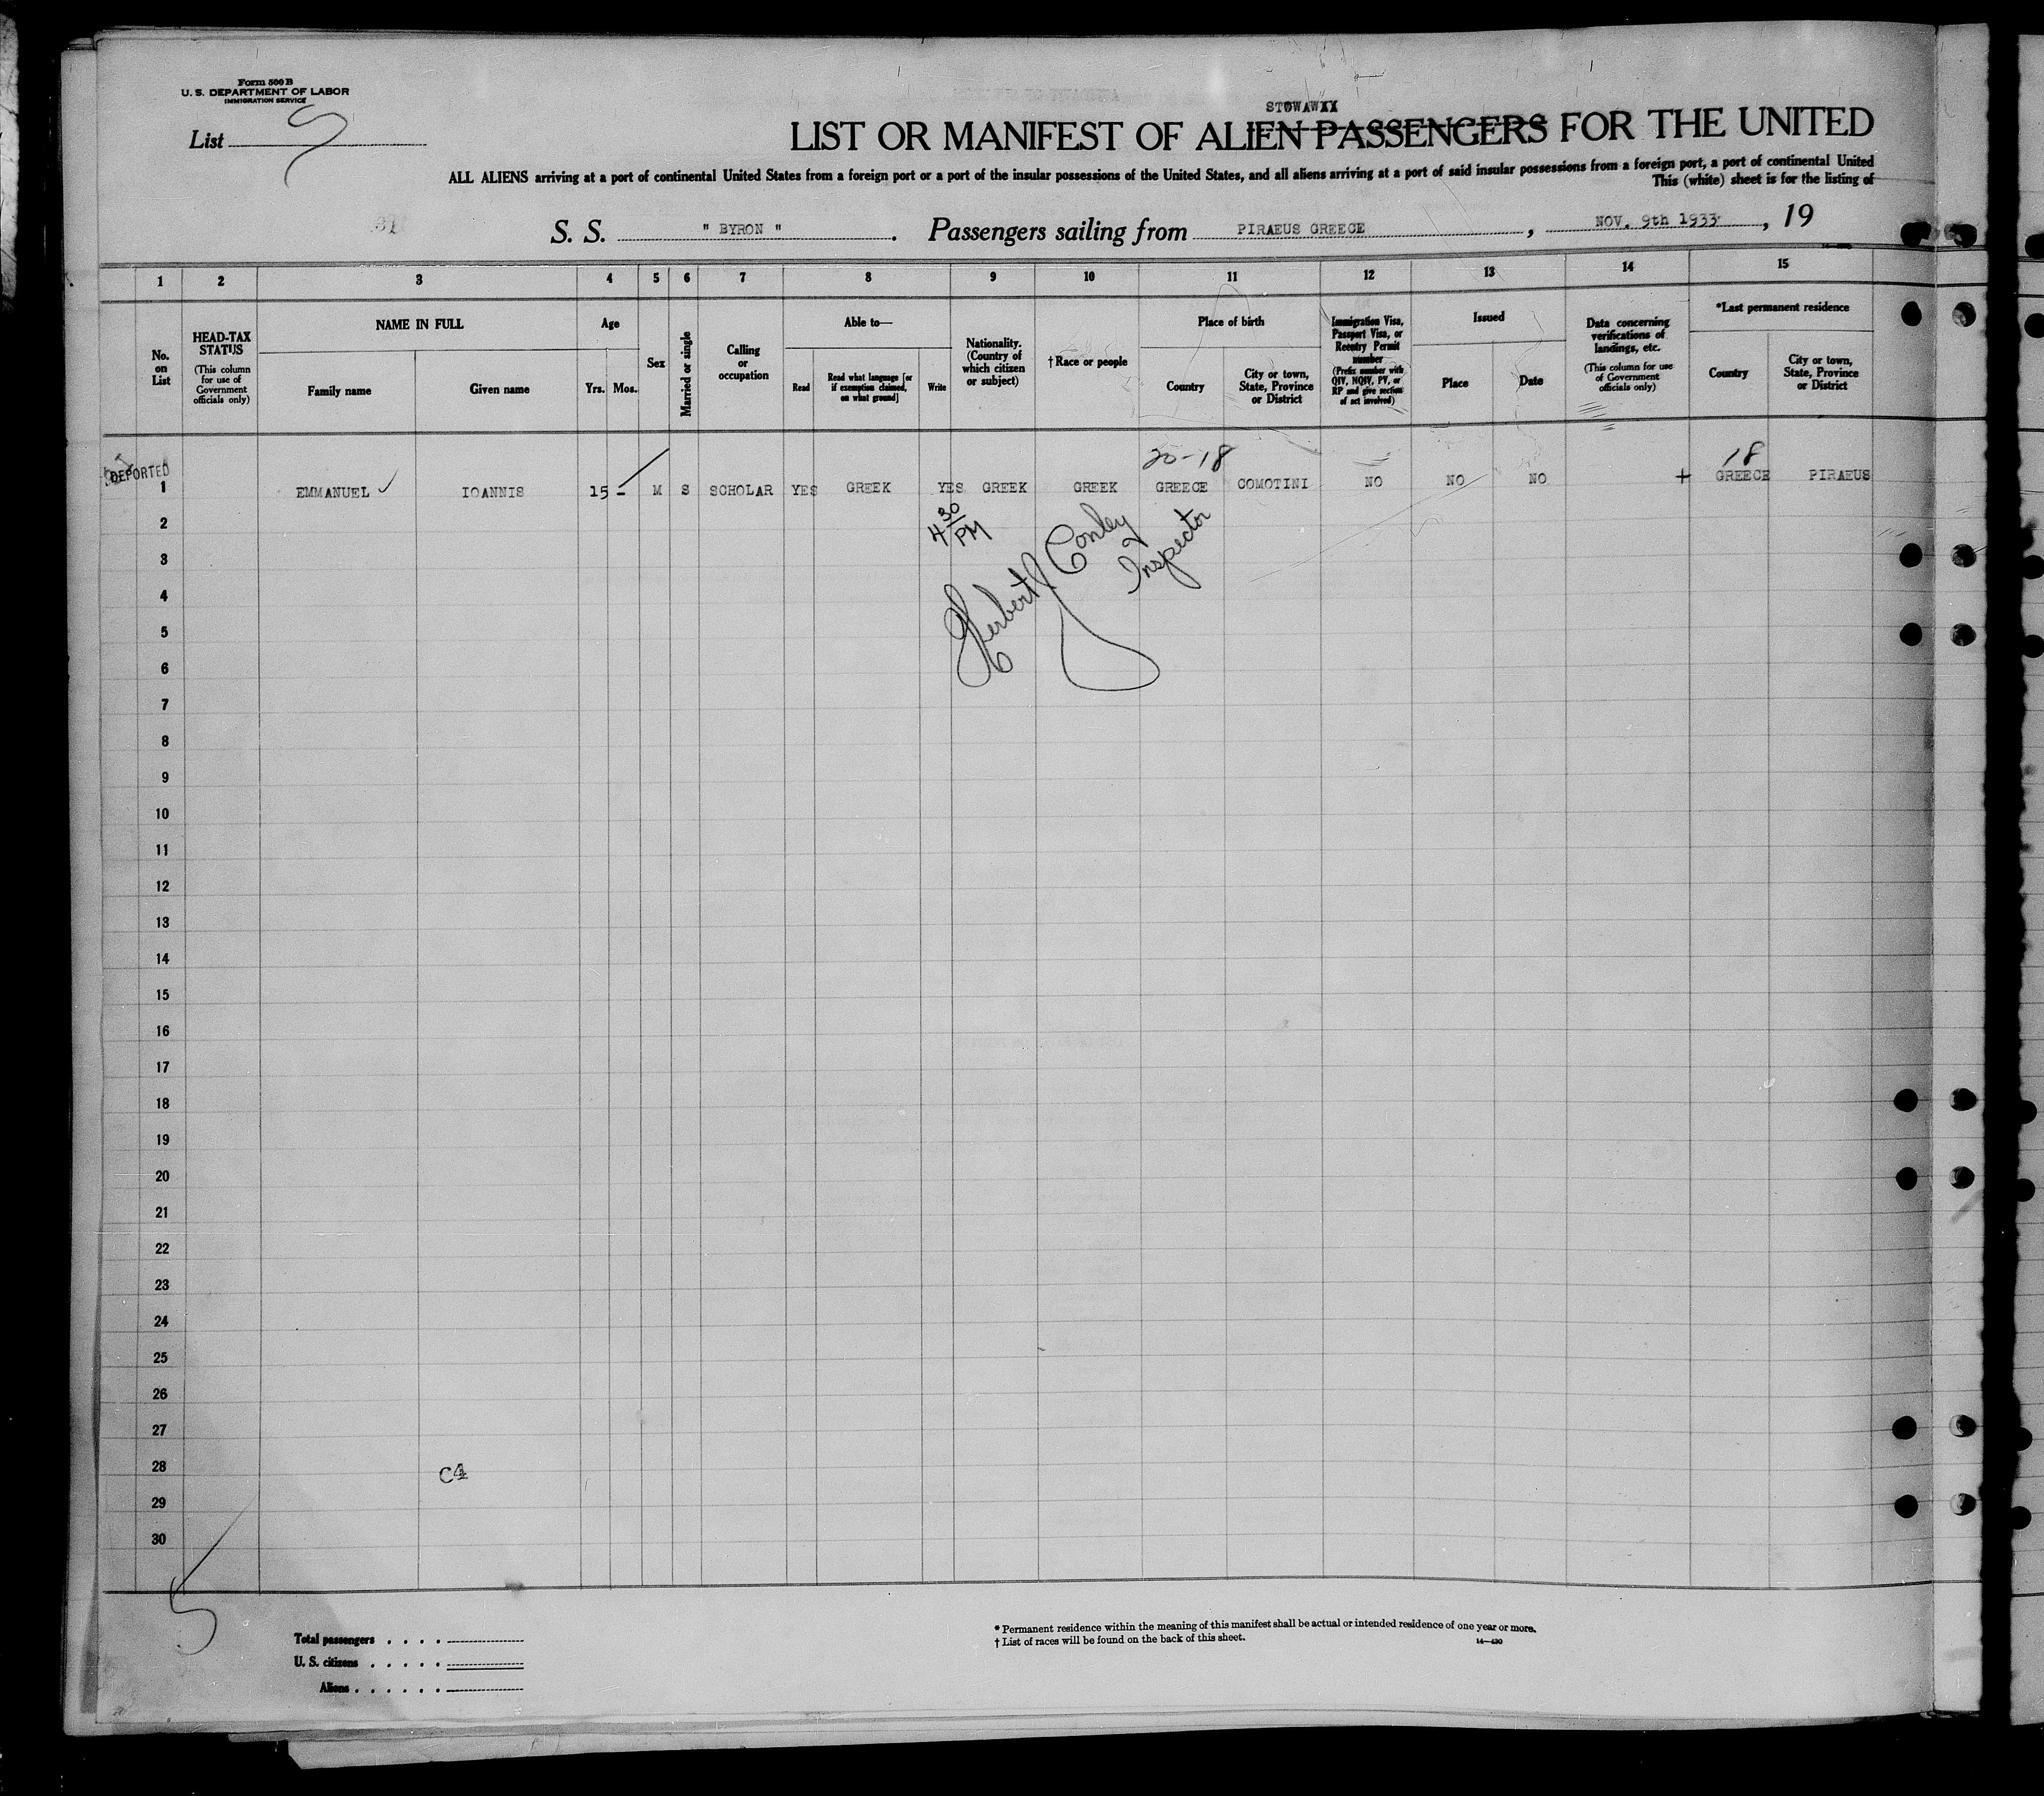 Form 500 B
U. S. DEPARTMENT OF LABOR
IMMIGRATION SERVICE
List 5
STOWAWXX
LIST OR MANIFEST OF ALIEN PASSENGERS FOR THE UNITED
ALL ALIENS arriving at a port of continental United States from a foreign port or a port of the insular possessions of the United States, and all aliens arriving at a port of said insular possessions from a foreign port, a port of continental United
This (white) sheet is for the listing of
S. S. " BYRON " . Passengers sailing from PIRAEUS GREECE , NOV. 9th 1933 , 19
1 2 3 4 5 6 7 8 9 10 11 12 13 14 15
No. on List
HEAD-TAX STATUS (This column for use of Government officials only)
NAME IN FULL
Family name
Given name
Age
Yrs. Mos.
Sex
Married or single
Calling or occupation
Able to—
Read
Read what language [or if exemption claimed, on what ground]
Write
Nationality. (Country of which citizen or subject)
† Race or people
Place of birth
Country
City or town, State, Province or District
Immigration Visa, Passport Visa, or Reentry Permit number (Prefix number with QIV, NQIV, PV, or RP and give section of act involved)
Issued
Place
Date
Data concerning verifications of landings, etc. (This column for use of Government officials only)
*Last permanent residence
Country
City or town, State, Province or District
20-18 18
DEPORTED
1 EMMANUEL ✓ IOANNIS 15 - M S SCHOLAR YES GREEK YES GREEK GREEK GREECE COMOTINI NO NO NO + GREECE PIRAEUS
4 30 PM
Herbert J Conley
Inspector
2
3
4
5
6
7
8
9
10
11
12
13
14
15
16
17
18
19
20
21
22
23
24
25
26
27
28
C4
29
30
5
Total passengers . . . .
U. S. citizens . . . . .
Aliens . . . . . .
* Permanent residence within the meaning of this manifest shall be actual or intended residence of one year or more.
† List of races will be found on the back of this sheet.
14—430